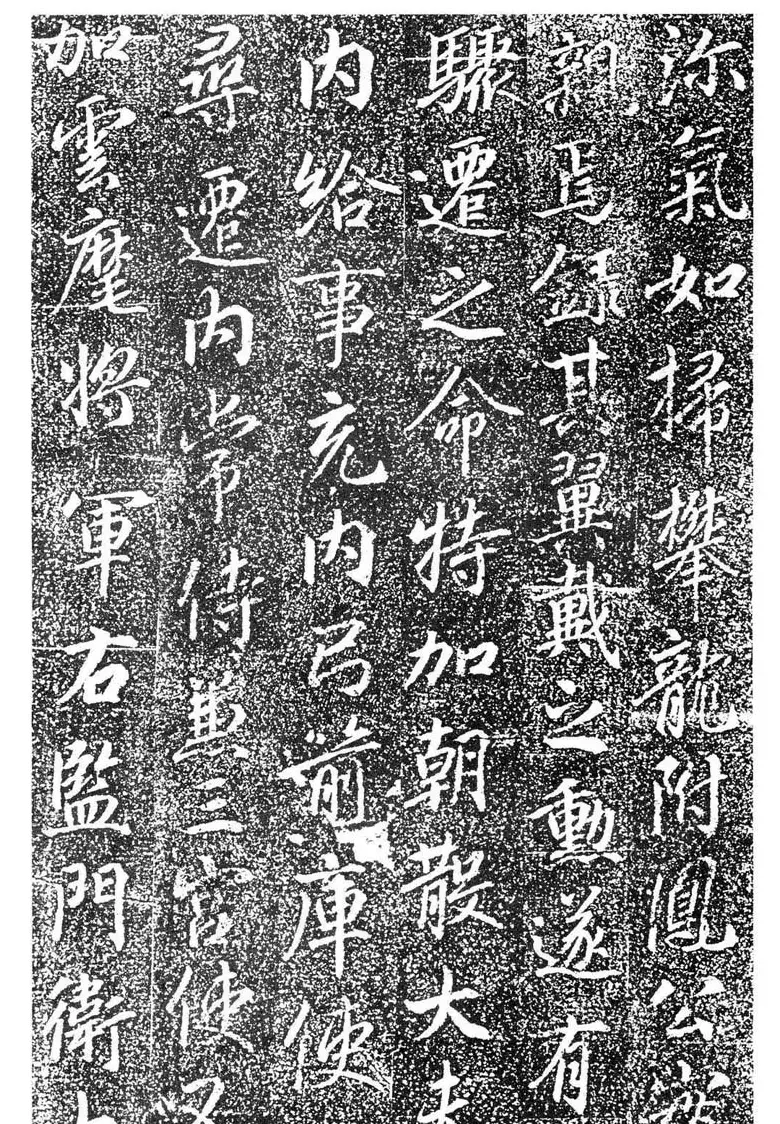 沴氣如掃攀龍附鳳公
親焉録其翼戴之勳遂有
驟遷之命特加朝散大夫
内給事充内弓箭庫使
尋遷内常侍兼三宮使
加雲麾將軍右監門衛